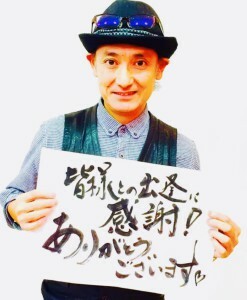 皆様との出逢に
感謝!
ありがとう
ございます